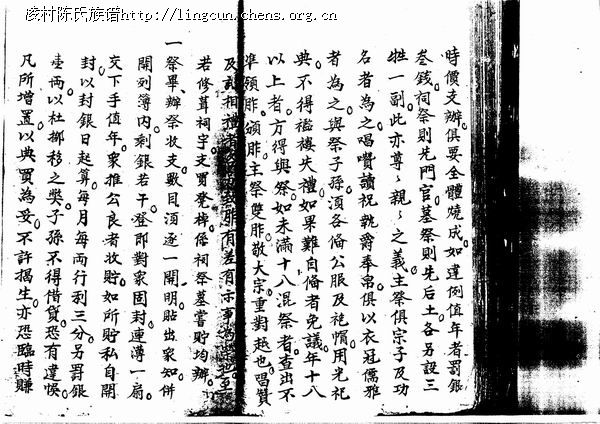 凌村陈氏族谱http://lingcun.chens.org.cn
時價支辦俱要全體燒成如違例值年者罰銀
叁錢祠祭則先門官墓祭則先后土各另設三
牲一副此亦尊々親々之義主祭俱宗子及功
名者為之唱讚讀祝執爵奉帛俱以衣冠儒雅
者為之與祭子孫須各俻公服及袍帽用光祀
典不得襤褸失禮如果難自俻者免議年十八
以上者方得與祭如未滿十八混祭者查出不
準領胙頒胙主祭雙胙敬大宗重對越也唱贊
及
若修葺祠宇支買凳棹係祠祭墓嘗貯均辦
一祭畢辦祭收支數目須逐一開明貼出衆知併
開列簿內剩銀若干登即對衆固封連簿一扇
交下手值年衆推公良者收貯如所貯私自開
封以封銀日起算每月每両行利三分另罰銀
壹両以杜挪移之獘子孫不得借貸恐有違悮
凡所增置以典買為妥不許揭生亦恐臨時賺